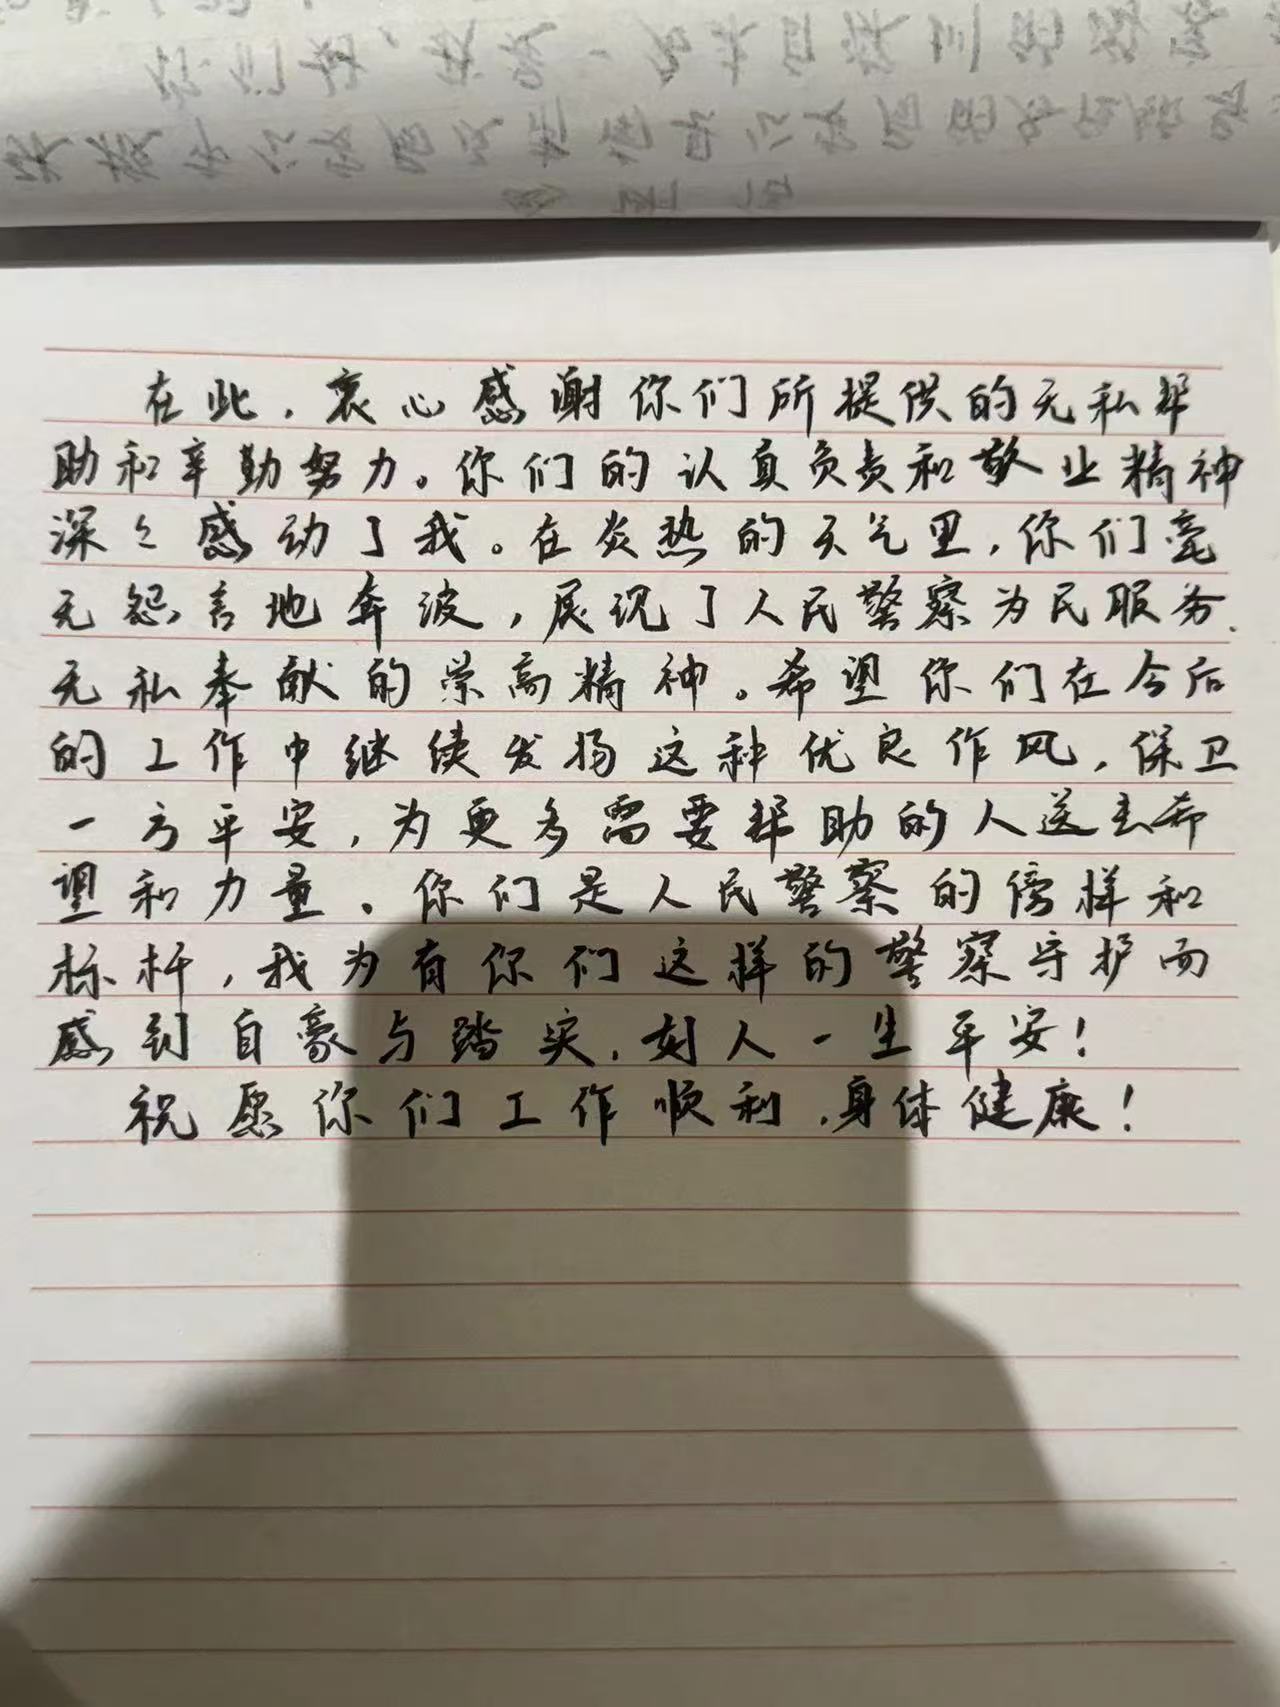 在此，衷心感谢你们所提供的无私帮
助和辛勤努力。你们的认真负责和敬业精神
深々感动了我。在炎热的天气里，你们毫
无怨言地奔波，展现了人民警察为民服务、
无私奉献的崇高精神。希望你们在今后
的工作中继续发扬这种优良作风，保卫
一方平安，为更多需要帮助的人送去希
望和力量。你们是人民警察的榜样和
标杆，我为有你们这样的警察守护而
感到自豪与踏实，好人一生平安！
祝愿你们工作顺利，身体健康！